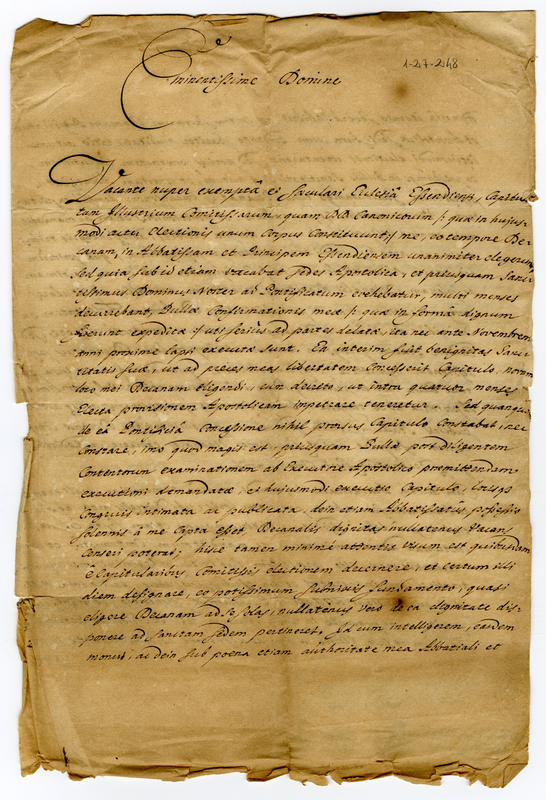 1-27-248
Eminentissime Domine
Vacante nuper exempta et sæculari Ecclesia Essendiensi, Capitu-
lum Illustrium Comitissarum, quam DD. Canonicorum /: quæ in hujus-
modi actu electionis unum Corpus Constituunt :/ me, eo tempore De-
canam, in Abbatissam et Principem Essendiensem unanimiter elegerunt
sed quia sub id etiam vacabat Sedes Apostolica, et priusquam Sanc-
tissimus Dominus Noster ad Pontificatum evehebatur, multi menses
decurrebant, Bullæ Confirmationis meæ /: quæ in forma dignum
fuerunt expeditæ :/ uti serius ad partes delatæ, ita nec ante Novembrem
anni proxime lapsi executæ sunt. Ea interim fuit benignitas Sanc-
titatis suæ, ut ad preces meas libertatem Concesserit Capitulo, novam
loco mei Decanam eligendi, cum decreto, ut intra quatuor menses
Electa provisionem Apostolicam impetrare teneretur. Sed quamqua
de ea Pontificia Concessione nihil prorsus Capitulo Constabat, nec
Constare, imo quod magis est, priusquam Bullæ post diligentem
Contentorum examinationem ab Executore Apostolico præmittendam
executioni demandatæ, et hujusmodi executio Capitulo,
Congruis intimata ac publicata, dein etiam Abbatissatus possessio
solennis à me Capta esset Decanalis dignitas nullatenus Vacans
Censeri poterat; hisce tamen minime attentis visum est quibusdam
è Capitularibus Comitissis electionem decernere, et certum illi
diem designare, eo potissimum subnixis fundamento, quasi
eligere Decanam ad se solas, nullatenus vero de ea dignitate dis-
ponere ad sanctam sedem pertineret. Id cum intelligerem, easdem
monui, ac dein sub poena etiam authoritate mea Abbatiali et